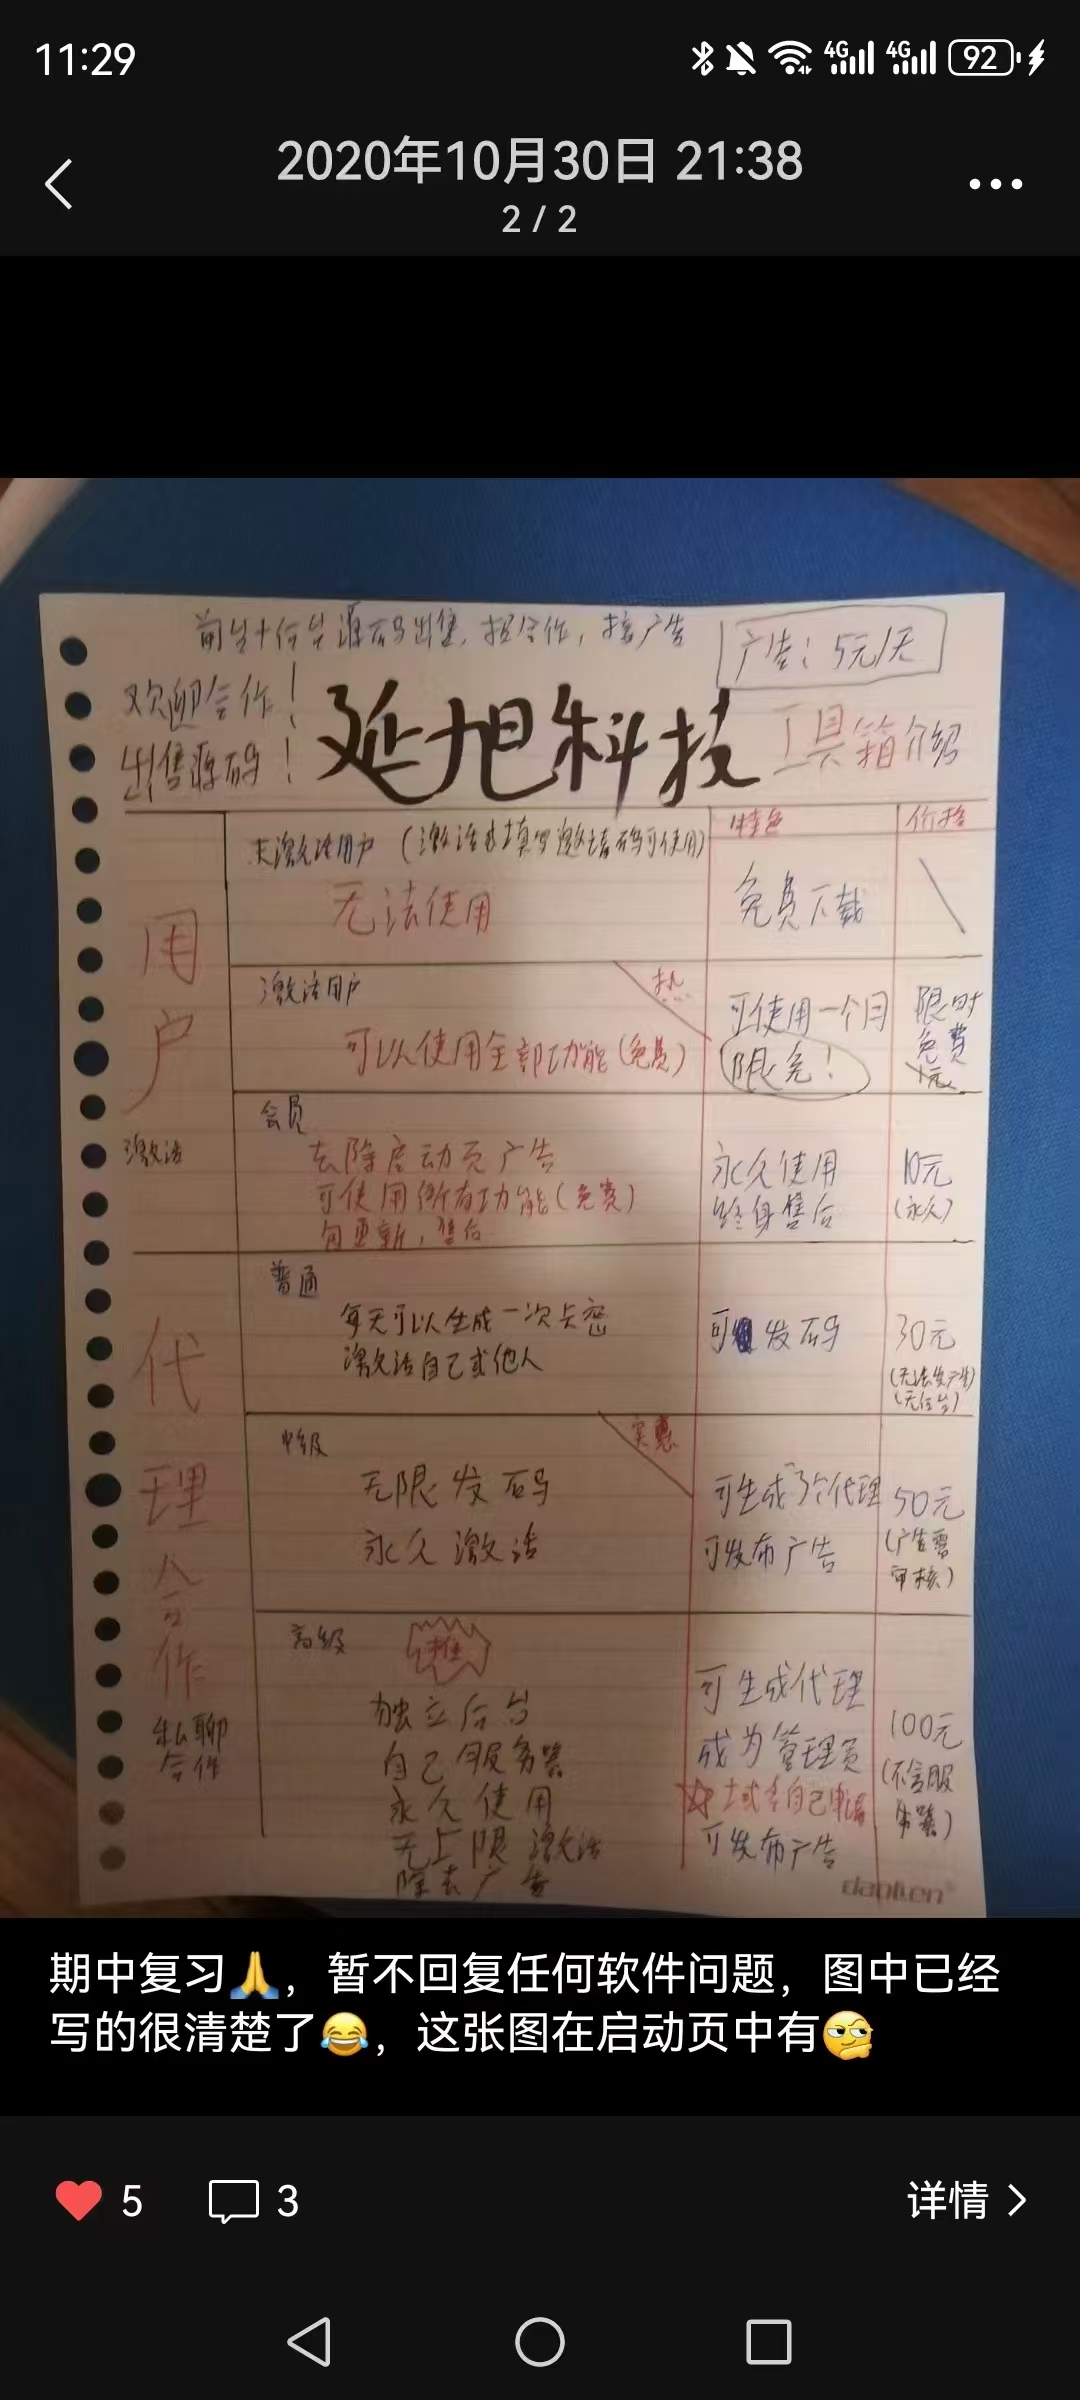 11:29
4G 4G 92
2020年10月30日 21:38
2 / 2
前台+后台源码出售,招合作,接广告
广告:5元/天
欢迎合作!
出售源码!
延旭科技
工具箱介绍
特色
价格
用户
激活
未激活用户(激活或填写邀请码可使用)
无法使用
免费下载
激活用户
热
可以使用全部功能(免费)
可使用一个月
限免!
限时
免费
1元
会员
去除启动页广告
可使用所有功能(免费)
包更新,售后
永久使用
终身售后
10元
(永久)
代理合作
私聊
合作
普通
每天可以生成一次卡密
激活自己或他人
可 发码
30元
(无法发广告)
(无后台)
中级
实惠
无限发码
永久激活
可生成3个代理
可发布广告
50元
(广告需
审核)
高级
推
独立后台
自己服务器
永久使用
无上限激活
除去广告
可生成代理
成为管理员
域名自己申请
可发布广告
100元
(不含服
务器)
期中复习🙏,暂不回复任何软件问题,图中已经
写的很清楚了😂,这张图在启动页中有🤔
5
3
详情